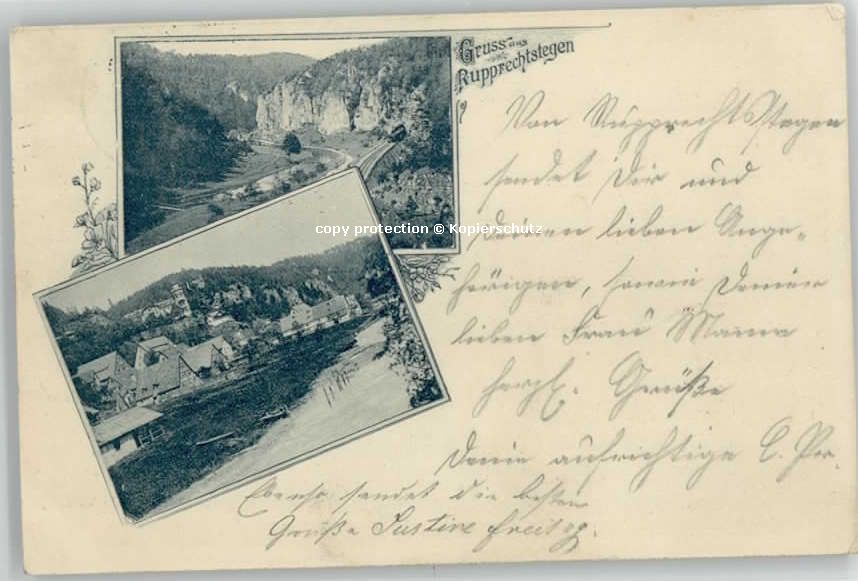 Gruss aus
Rupprechtstegen
Von Rupprechtstegen
sendet Dir und
Deinen lieben Ange-
hörigen, sowie Deiner
lieben Frau Mama
herzl. Grüße
Deine aufrichtige C. Pr.
Ebenso sendet die besten
Grüße Justine Freitag.
copy protection © Kopierschutz